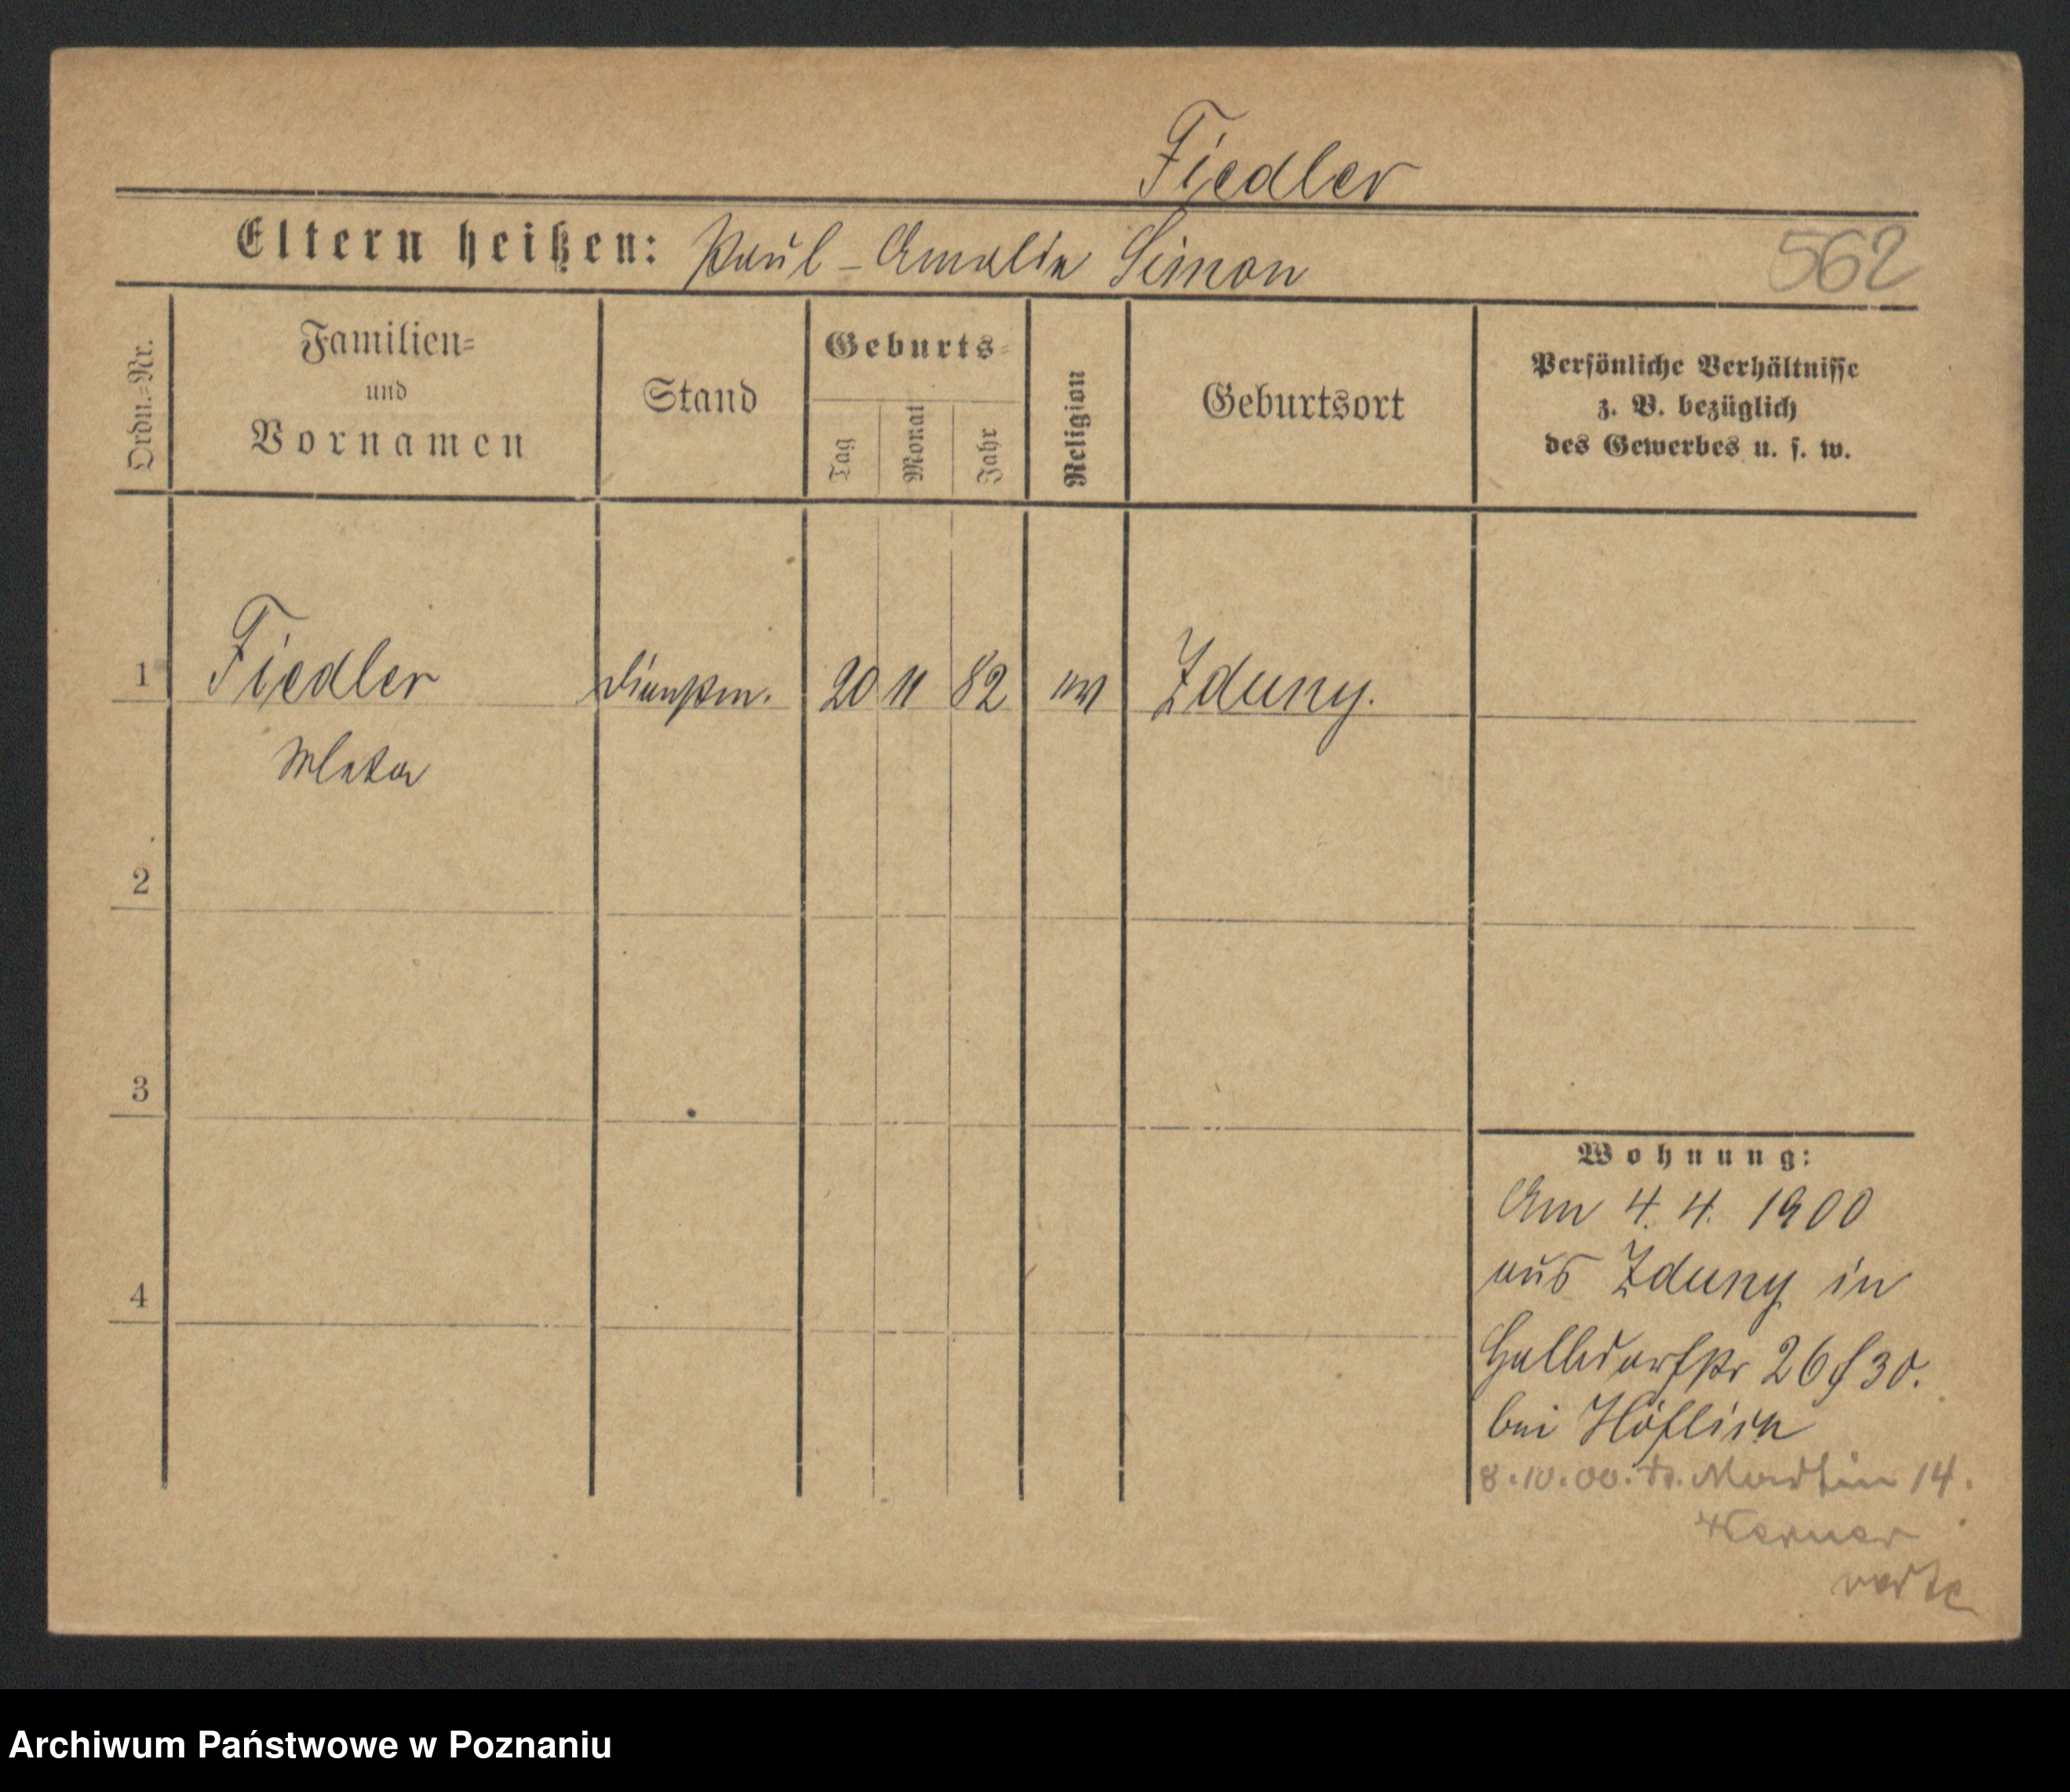 Fiedler
Eltern heißen: Paul - Amalie Simon
562
Ordn.-Nr.
Familien-
und
Vornamen
Stand
Geburts-
Tag
Monat
Jahr
Religion
Geburtsort
Persönliche Verhältnisse
z. B. bezüglich
des Gewerbes u. s. w.
1 Fiedler Dienstm. 20 11 82 ev Zduny.
Meta
2
3
4
Wohnung:
Am 4. 4. 1900
aus Zduny in
Halbdorfstr 26/30.
bei Höflich
8.10.00. St. Martin 14.
Werner
verte
Archiwum Państwowe w Poznaniu